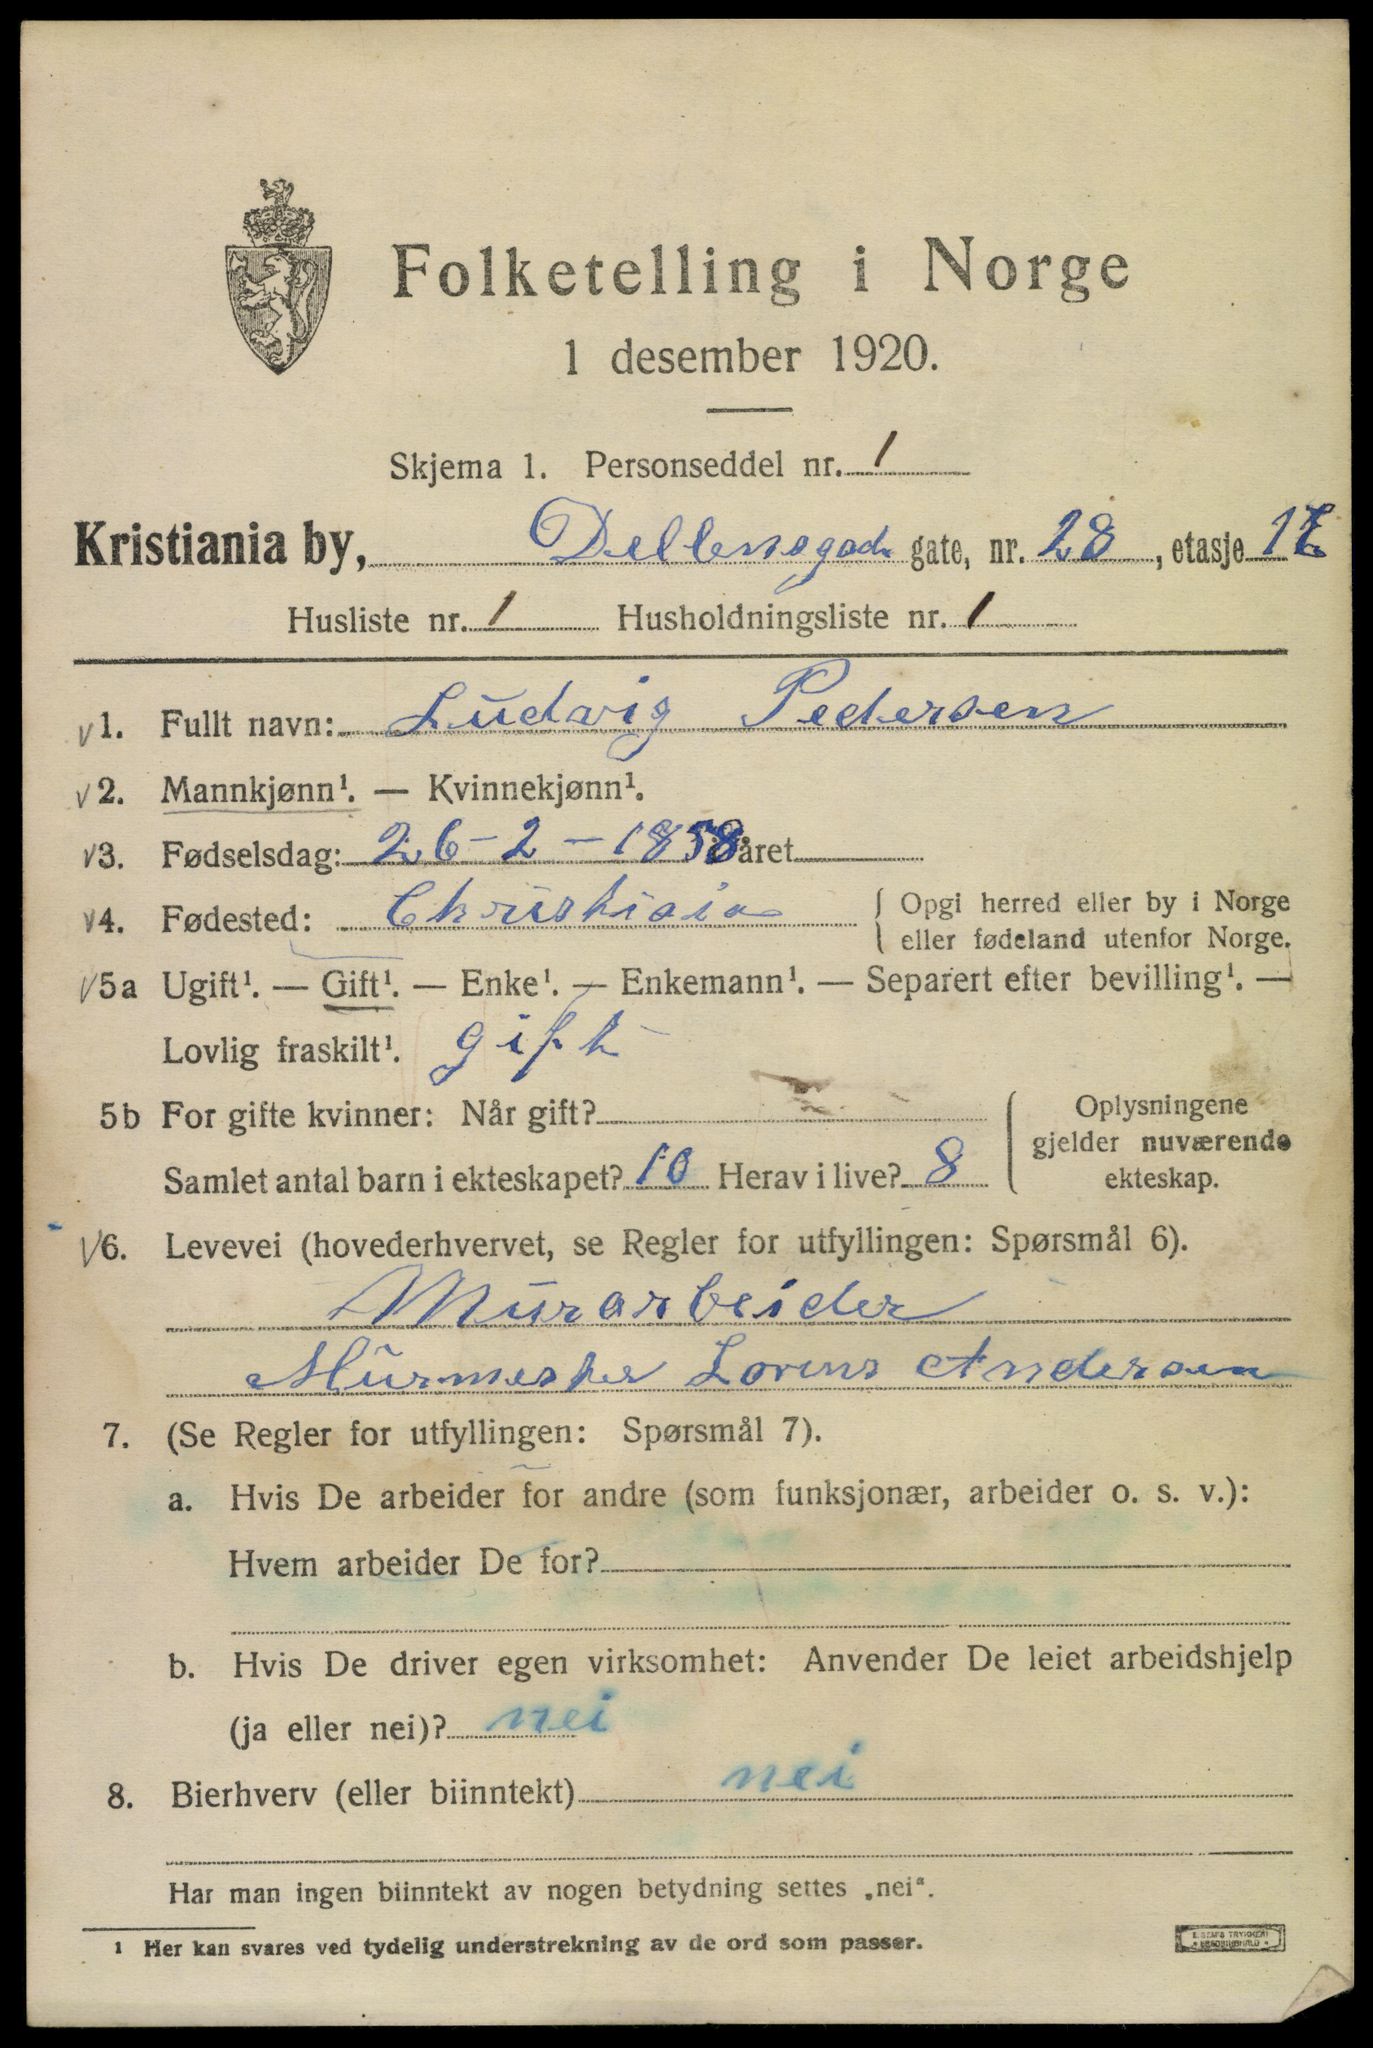 Folketelling i Norge
1 desember 1920.
Skjema 1. Personseddel nr. 1
Kristiania by, gate, nr. 28, etasje
Husliste nr. 1 Husholdningsliste nr. 1
v 1. Fullt navn: Ludvig Pedersen
v 2. Mannkjønn¹. — Kvinnekjønn¹.
v 3. Fødselsdag: 26-2-1858 i året
v 4. Fødested: Christiaia { Opgi herred eller by i Norge
eller fødeland utenfor Norge.
v 5a Ugift¹. — Gift¹. — Enke¹. — Enkemann¹. — Separert efter bevilling¹. —
Lovlig fraskilt¹. gift
5b For gifte kvinner: Når gift?
Samlet antal barn i ekteskapet? 10 Herav i live? 8
{ Oplysningene
gjelder nuværende
ekteskap.
v 6. Levevei (hovederhvervet, se Regler for utfyllingen: Spørsmål 6).
Murarbeider
Murmester Lorens Andersen
7. (Se Regler for utfyllingen: Spørsmål 7).
a. Hvis De arbeider for andre (som funksjonær, arbeider o. s. v.):
Hvem arbeider De for?
b. Hvis De driver egen virksomhet: Anvender De leiet arbeidshjelp
(ja eller nei)? nei
8. Bierhverv (eller biinntekt) nei
Har man ingen biinntekt av nogen betydning settes „nei“.
¹ Her kan svares ved tydelig understrekning av de ord som passer.